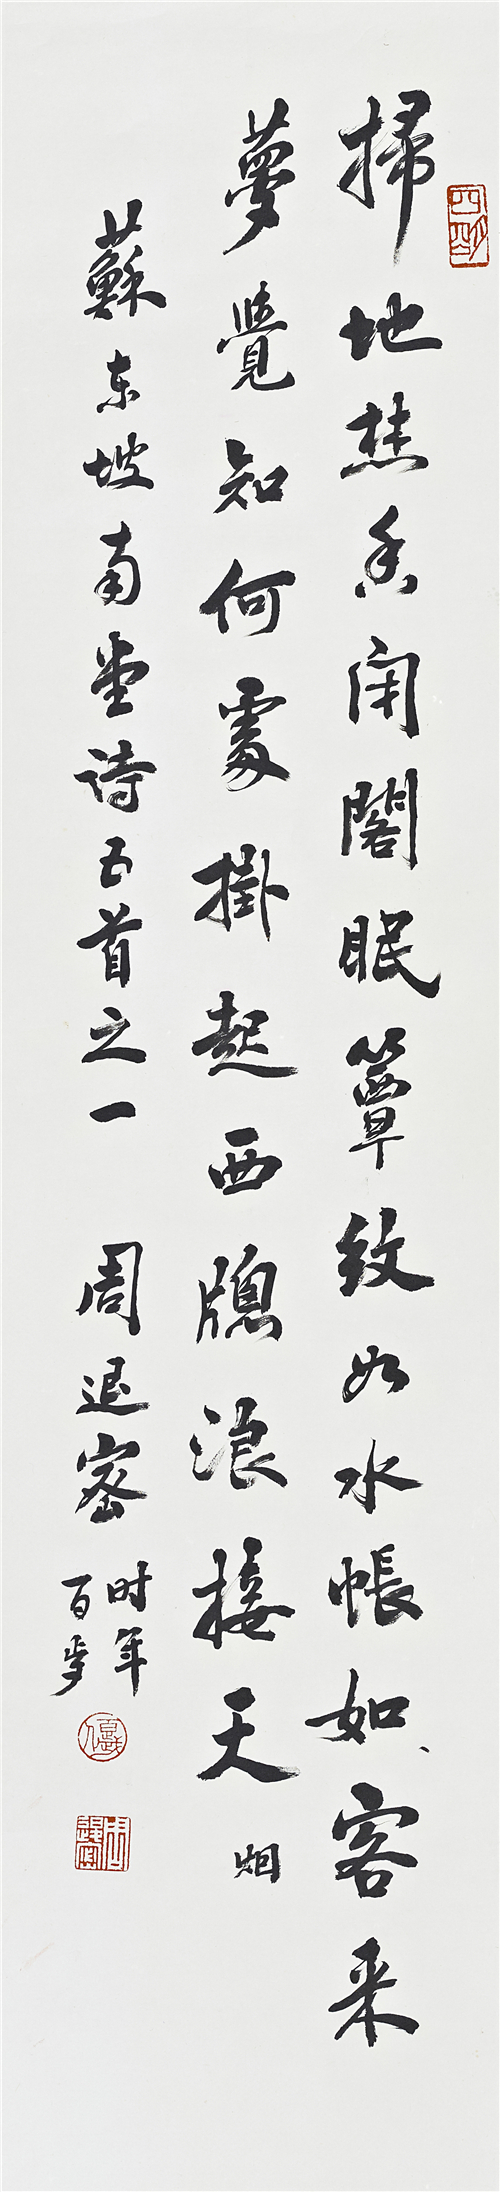 四明
掃地焚香閉閣眠簟紋如水帳如、客来
夢覺知何處掛起西牕浪接天 烟
蘇东坡南堂诗五首之一 周退密
时年
百岁
周退密